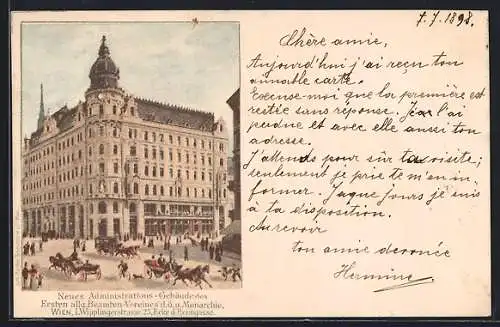 7. 7. 1898.
Chère amie,
Aujourd'hui j'ai reçu ton
aimable carte.
Excuse-moi que la première est
restée sans réponse. Je l'ai
perdue et avec elle aussi ton
adresse.
J'attends pour sûr ta visite;
seulement je prie te m'en in,
former. Jusque jours je suis
à ta disposition.
Au revoir
ton amie dévouée
Hermine
Neues Administrations-Gebäude des
Ersten allg. Beamten-Vereines d. ö. u. Monarchie,
WIEN, I. Wipplingerstrasse 25, Ecke d. Börsegasse.